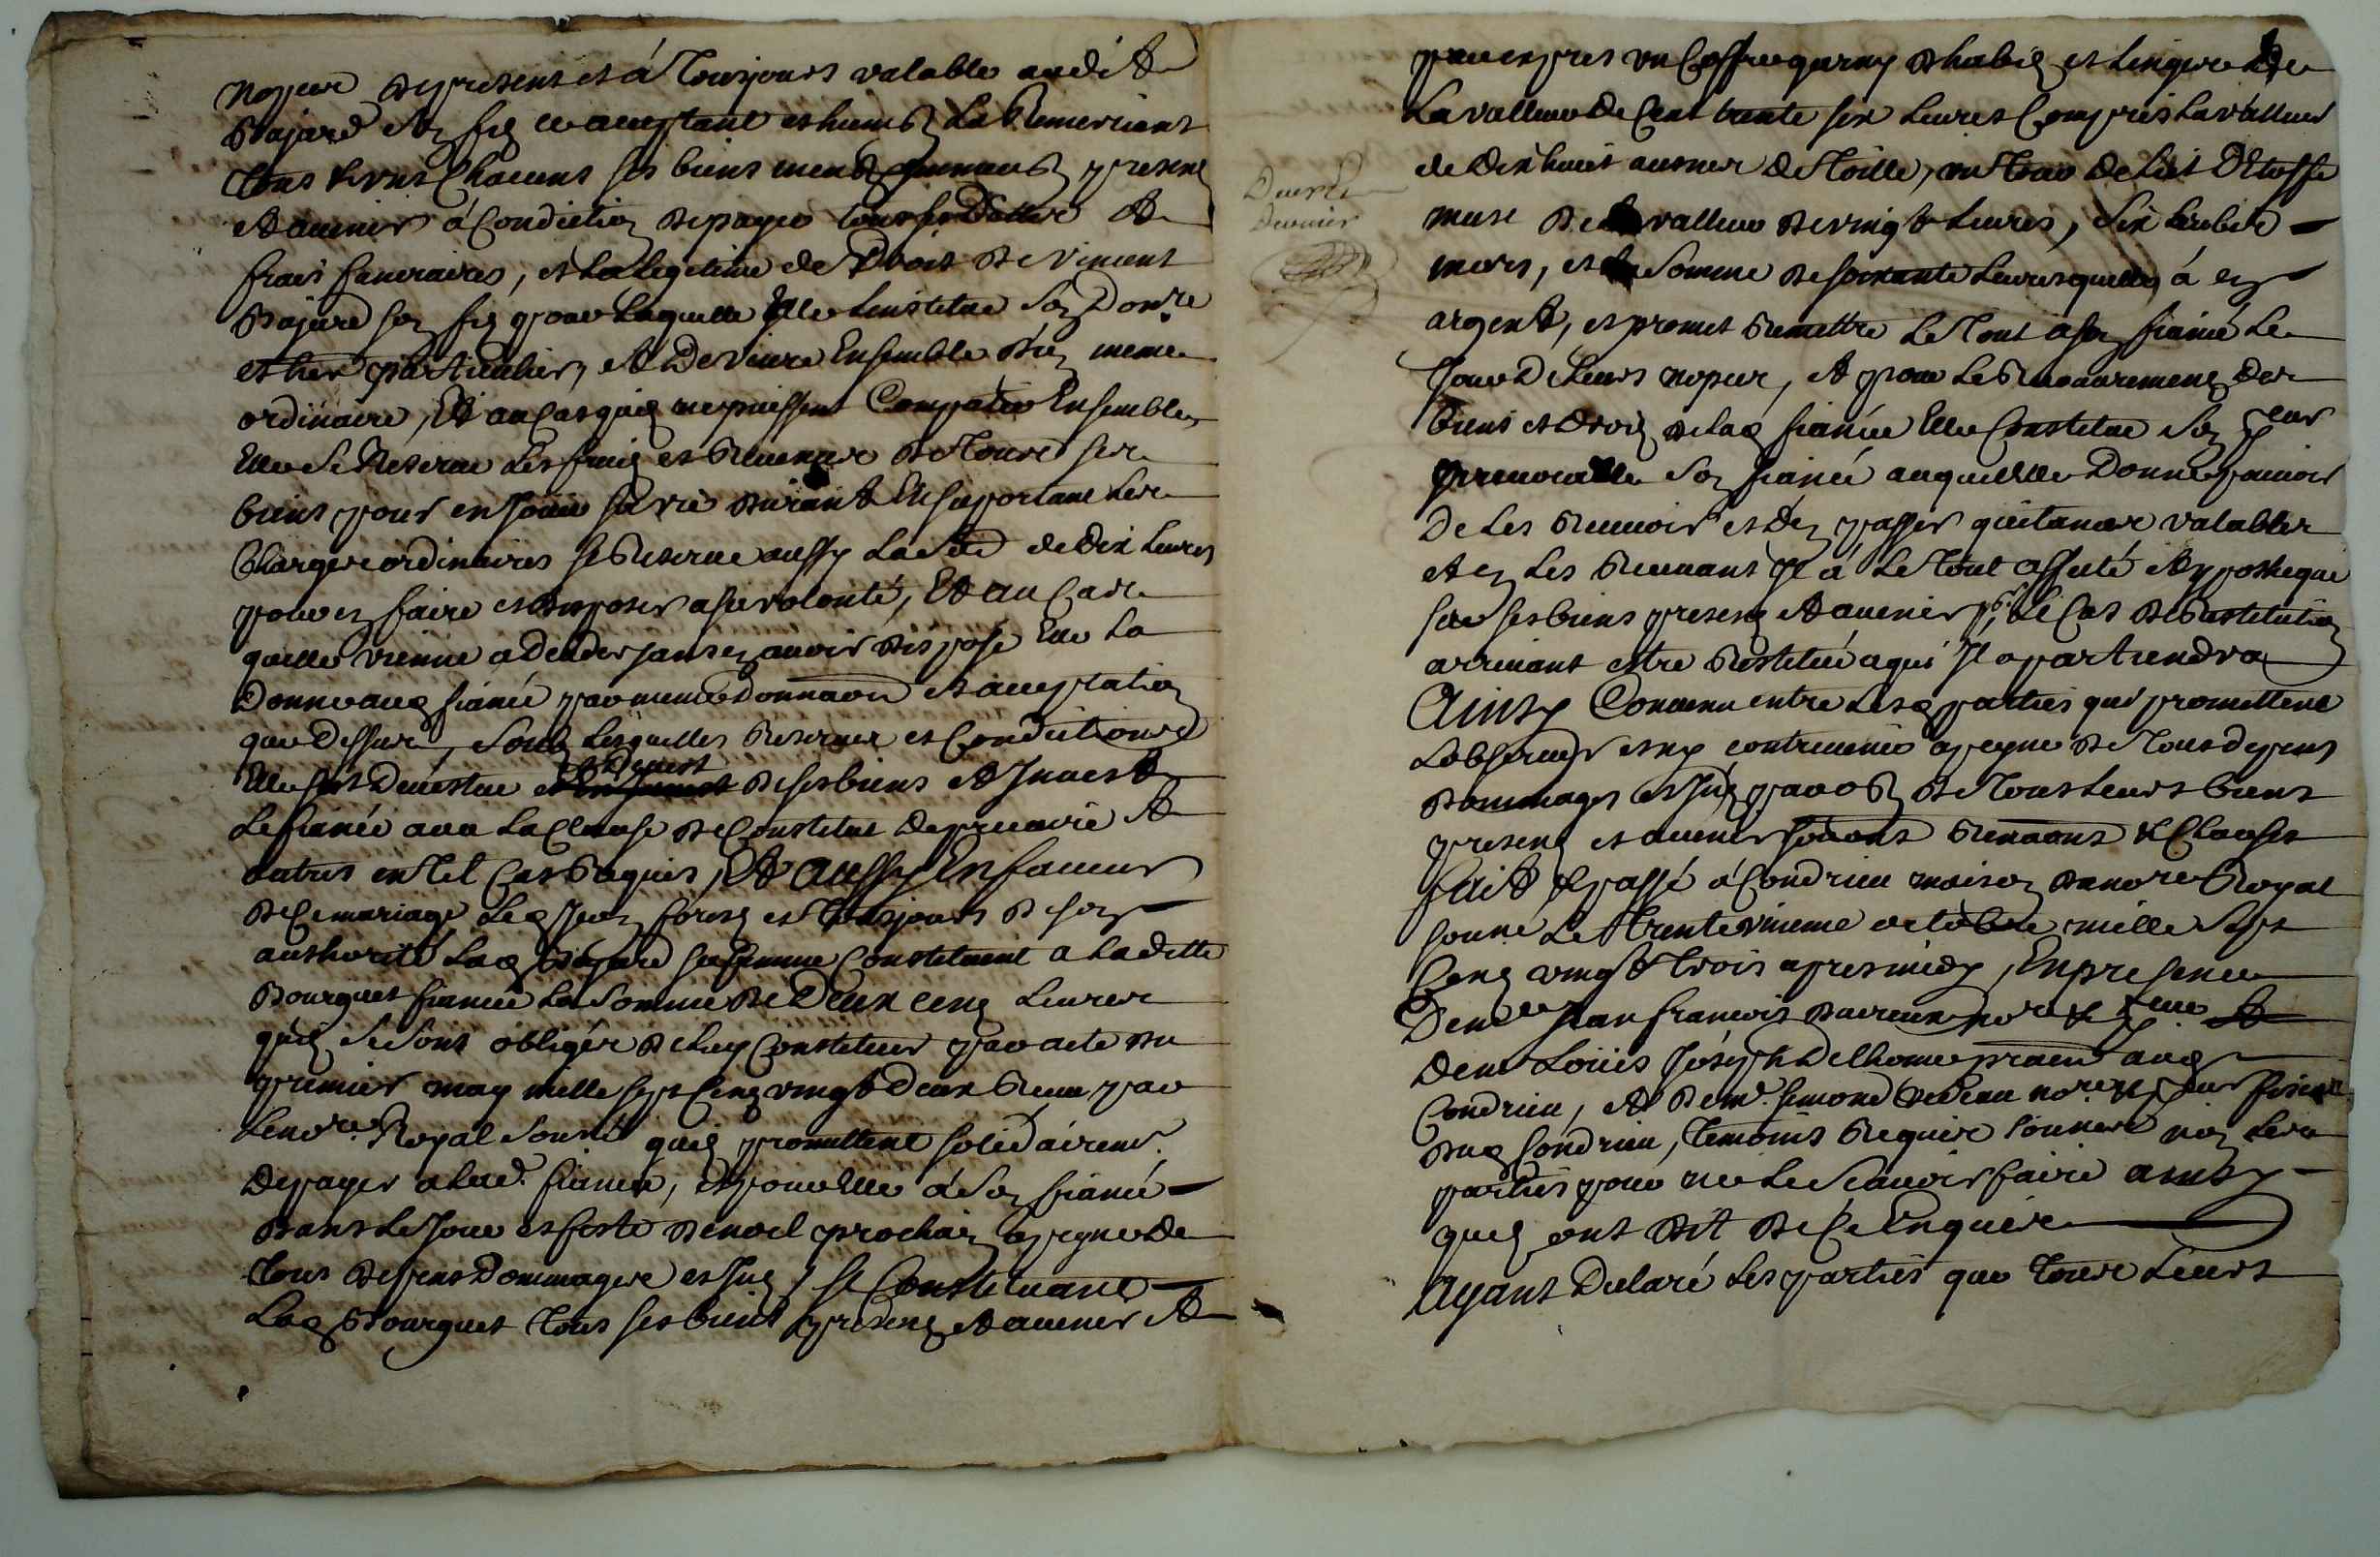 nopces de present et á Tousjours valable audit
Bajard Son fis ce acceptant et humb. La Remerciant
Tous et uns Chacuns ses biens meub. immeub. presens
et avenir á Condition de payer tous ses Dettes et
frais funeraires, et La legitime de Droit de Vincent
Bajard son fis pour Laquelle Elle Linstitue Son Don.re
et her particulier, et De vivre Ensemble d'un meme
ordinaire, Et au Cas quils ne puissent Compatir Ensemble
Elle Se Reserve Les fruis et Revenus de Tous ses
biens pour en Jouir sa vie durant En suportant Les
Charges ordinaires se Reserve aussy La So.e de dix Livres
pour en faire et disposer a sa volonté, Et au Cas
quelle vienne a Deceder sans en avoir disposé Elle La
Donne aud. fiancé par meme donnaon et acceptation
que Dessus, Soub Lesquelles Reserves et Conditions
Elle sest Devestue et Devest de ses biens et Invest
Le fiancé avec La Clause de Constitut de precaire et
autres en Tel Cas Requis, Et aussy En faveur
de Ce mariage Led. et Tousjours de son
authorité Lad. Bajard sa femme Constituent a Laditte
Bourguet fiancée La Somme de Deux cens Livres
quils Se Sont obligés de Luy Constituer par acte du
premier may mille sept Cens vingt Deux Receu par
Le no.re Royal Sousné quils promettent solidairem.t
De payer a Lad. fiancée, et pour Elle á Son fiancé
dans Le Jour et feste de noel prochain a peyne de
Tous depens Dommages et Int. Se Constituant
Lad. Bourguet Tous ses biens presens et avenir et
par expres un Coffre garny d'habis et Linges De
La valleur de Cent trente six Livres Compris La valleur
de dix huit aunes de Toille, un Tour de Lit D'Etoffe
de valleur de vingt Livres, Six
et Somme de soixante Livres quelle á en
argent, et promet Remettre Le Tout a son fiancé Le
Jour de Leurs nopces, et pour Le Recouvrement des
biens et droits de Lad. fiancée Elle Constitue Son p.eur
irrevocable Son fiancé auquel Elle Donne pouvoir
De Les Recevoir et d'en passer quitances valables
et en Les Recevant Il á Le tout affecté et ypotheque
sur ses biens presens et avenir p.r Le Cas de Restitution
arrivant estre Restitué a qui Il apartiendra
Ainsy Convenu entre Lesd. parties qui promettent
Lobserver et ny contrevenir a peyne de Tous depens
dommages et Int. par ob. de Tous Leurs biens
presens et avenir soubons Renaons & Clauses
fait & passé á Condrieu maison du no.re Royal
sousné Le Trente vnieme octobre mille sept
Cens vingt trois apres midy, En presence
De m.e Jean francois no.re & p.eur et
Louis Joseph Delhome aud.
Condrieu, et de m.e simond no.re & p.eur
dud. Condrieu, Temoins Requis sousnes non Les
parties pour ne Le Scavoir faire ainsy
quils ont dit de Ce Enquis
Ayant Declaré Les parties que Tous Leurs